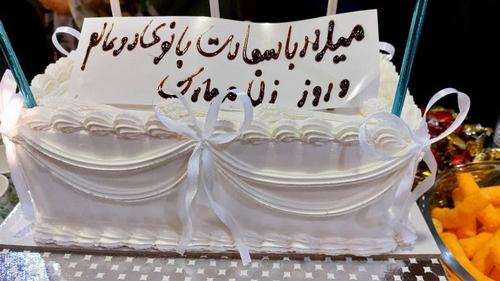 میلاد باسعادت بانوی دو عالم
و روز زن مبارک